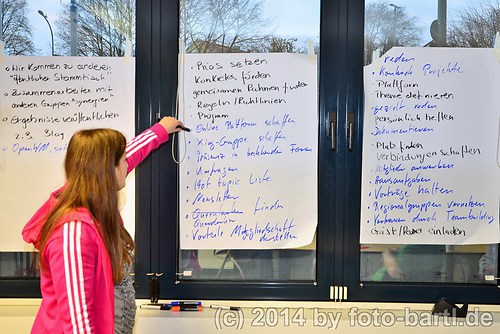 Wir kommen zu anderen
Zusammenarbeiten mit
anderen Gruppen
Ergebnisse veröffentlichen
z.B. Blog
Prios setzen
Konkrete fördern
gemeinsamen Rahmen finden
Regeln/Richtlinien
Program
Online Plattform schaffen
Xing-Gruppe schaffen
Präsenz in bestehende Foren
Umfragen
Hot topic Liste
Newsletter
finden
Vorteile Mitgliedschaft
darstellen
reden
Konkrete Projekte
Plattform
Theme definieren
gezielt reden
persönlich helfen
Dokumentieren
Platz finden
Verbindungen schaffen
Mitglieder anwerben
Hausaufgaben
Vorträge halten
Regionalgruppen verwalten
Vertrauen durch Teambuilding
Gäste/Redner einladen
(c) 2014 by foto-bartl.de